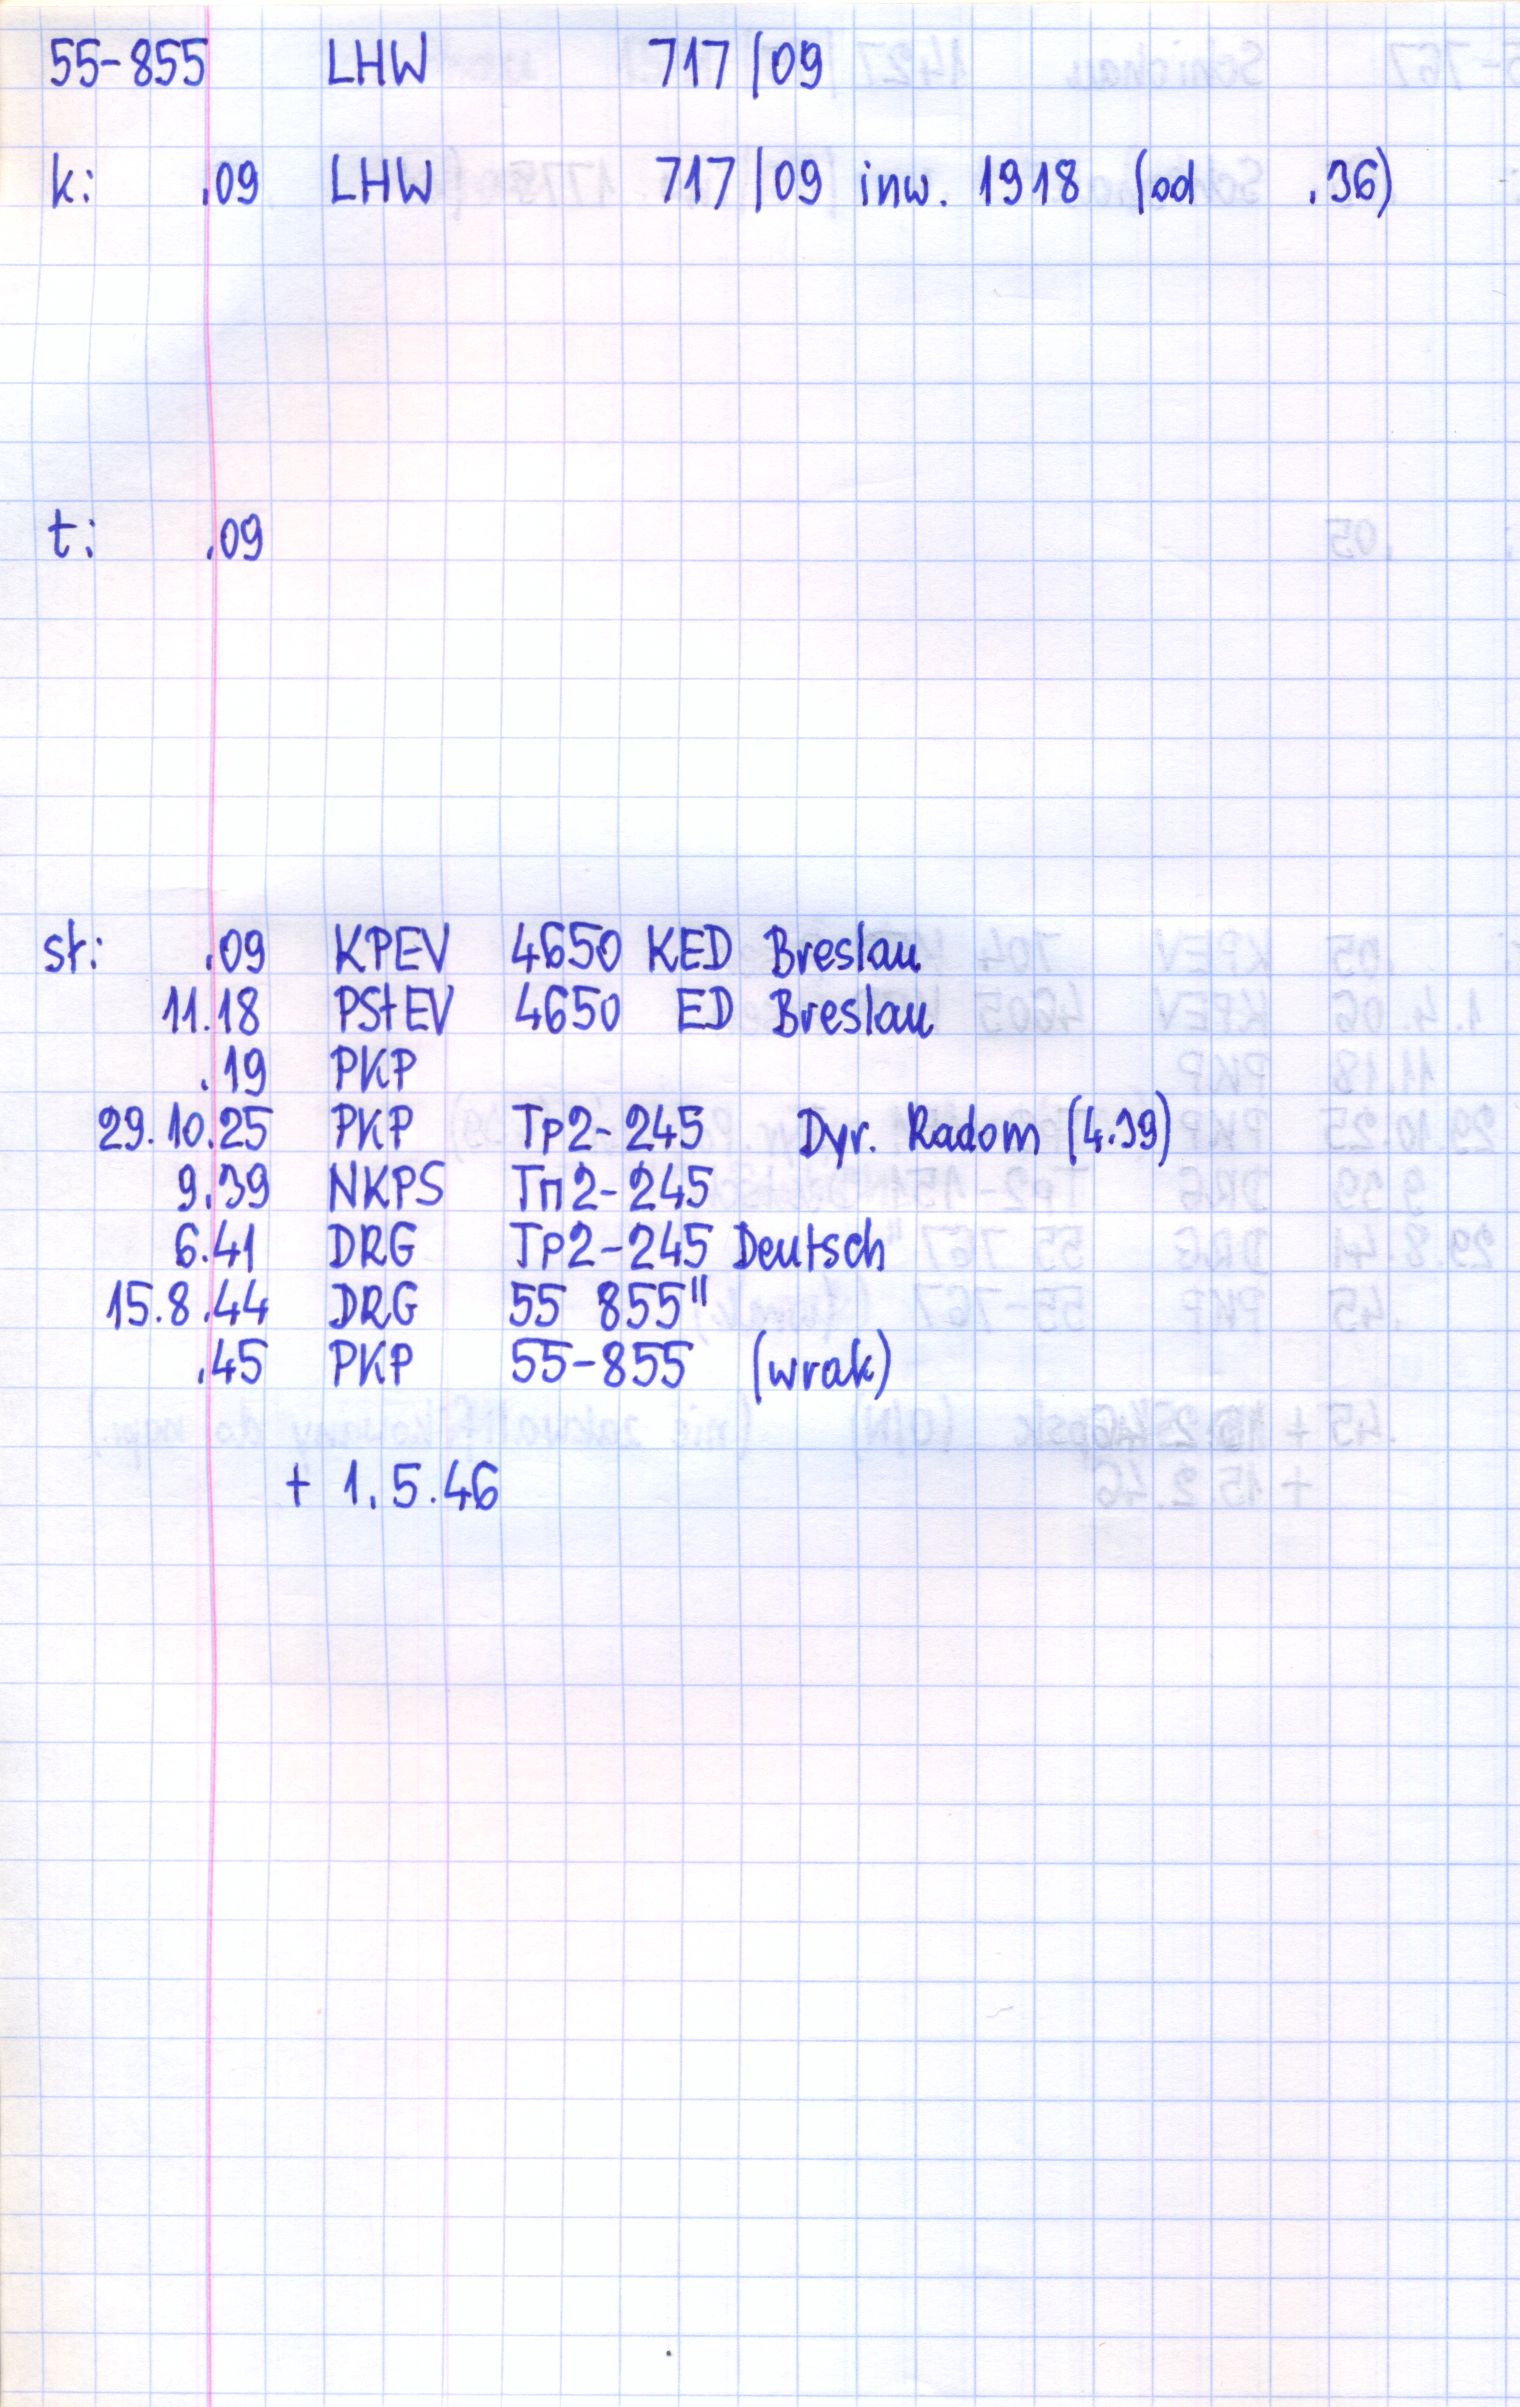 55-855 LHW 717/09
k: .09 LHW 717/09 inw. 1918 (od .36)
t: .09
sł: .09 KPEV 4650 KED Breslau
11.18 PStEV 4650 ED Breslau
.19 PKP
29.10.25 PKP Tp2-245 Dyr. Radom (4.39)
9.39 NKPS Тп2-245
6.41 DRG Tp2-245 Deutsch
15.8.44 DRG 55 855"
.45 PKP 55-855 (wrak)
+ 1.5.46